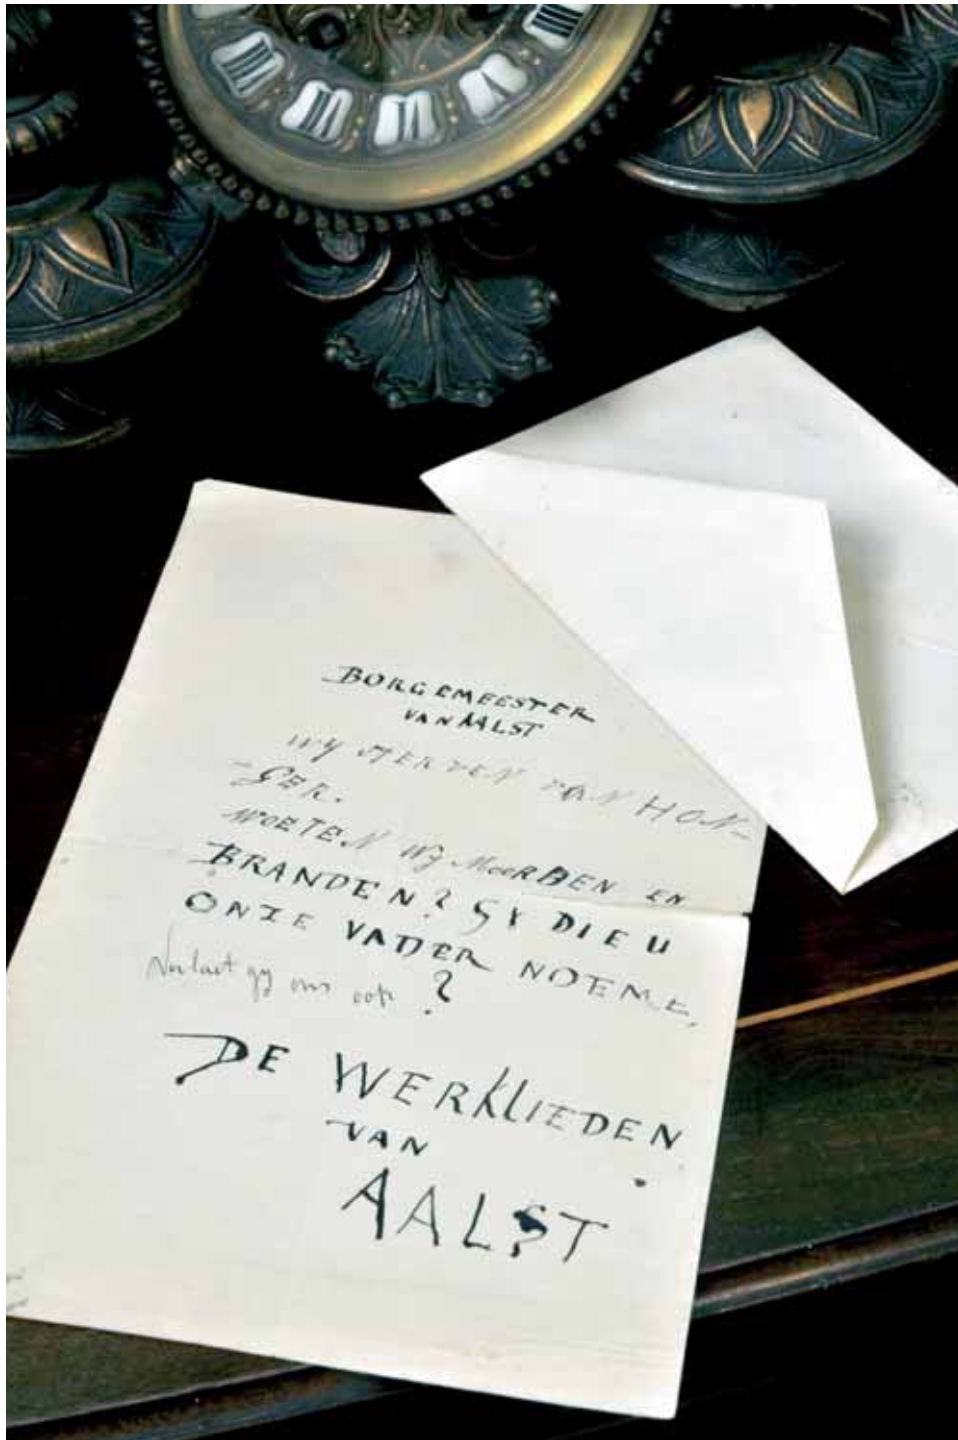 BORGEMEESTER
VAN AALST
WY STERVEN VAN HON-
-GER.
MOETEN WY MOORDEN EN
BRANDEN? GY DIE U
ONZE VADER NOEMT,
Verlaat gy ons ook ?
DE WERKLIEDEN
VAN
AALST